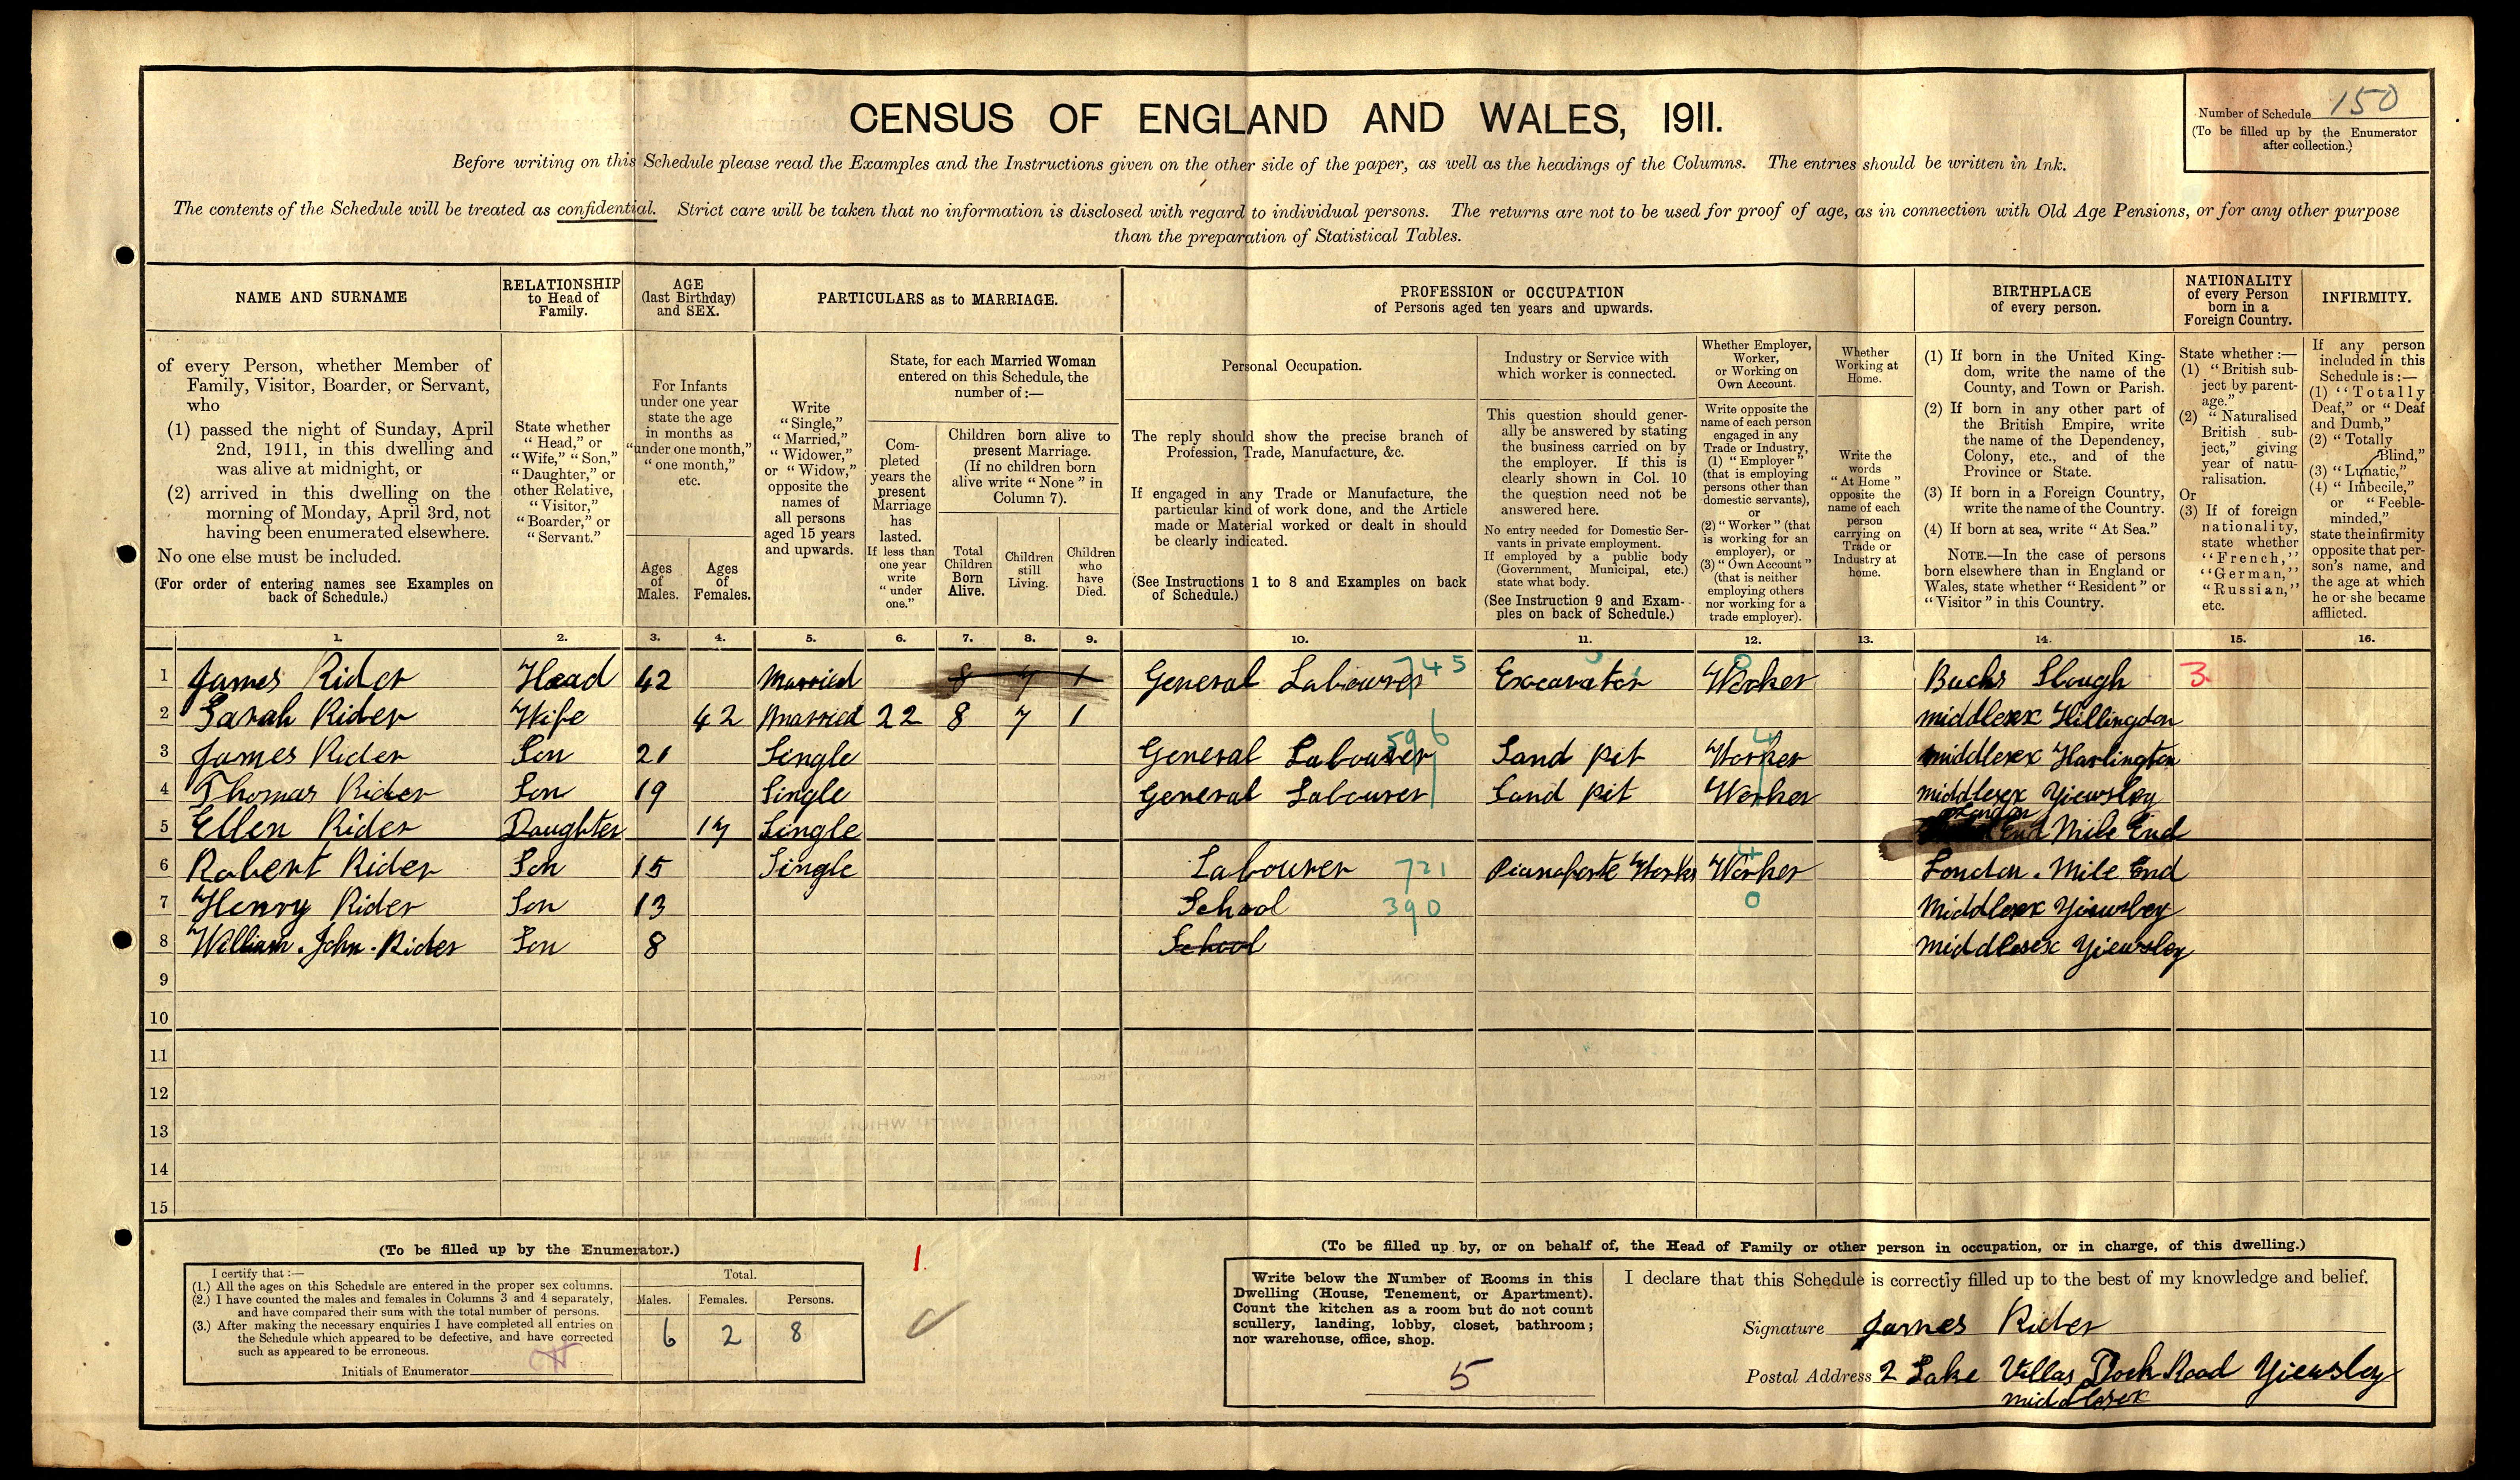 CENSUS OF ENGLAND AND WALES, 1911.
Number of Schedule 150
(To be filled up by the Enumerator
after collection.)
Before writing on this Schedule please read the Examples and the Instructions given on the other side of the paper, as well as the headings of the Columns. The entries should be written in Ink.
The contents of the Schedule will be treated as confidential. Strict care will be taken that no information is disclosed with regard to individual persons. The returns are not to be used for proof of age, as in connection with Old Age Pensions, or for any other purpose
than the preparation of Statistical Tables.
NAME AND SURNAME
of every Person, whether Member of
Family, Visitor, Boarder, or Servant,
who
(1) passed the night of Sunday, April
2nd, 1911, in this dwelling and
was alive at midnight, or
(2) arrived in this dwelling on the
morning of Monday, April 3rd, not
having been enumerated elsewhere.
No one else must be included.
(For order of entering names see Examples on
back of Schedule.)
RELATIONSHIP
to Head of
Family.
State whether
"Head," or
"Wife," "Son,"
"Daughter," or
other Relative,
"Visitor,"
"Boarder," or
"Servant."
AGE
(last Birthday)
and SEX.
For Infants
under one year
state the age
in months as
"under one month,"
"one month,"
etc.
Ages
of
Males.
Ages
of
Females.
PARTICULARS as to MARRIAGE.
Write
"Single,"
"Married,"
"Widower,"
or "Widow,"
opposite the
names of
all persons
aged 15 years
and upwards.
State, for each Married Woman
entered on this Schedule, the
number of:—
Com-
pleted
years the
present
Marriage
has
lasted.
If less than
one year
write
"under
one."
Children born alive to
present Marriage.
(If no children born
alive write "None" in
Column 7).
Total
Children
Born
Alive.
Children
still
Living.
Children
who
have
Died.
PROFESSION or OCCUPATION
of Persons aged ten years and upwards.
Personal Occupation.
The reply should show the precise branch of
Profession, Trade, Manufacture, &c.
If engaged in any Trade or Manufacture, the
particular kind of work done, and the Article
made or Material worked or dealt in should
be clearly indicated.
(See Instructions 1 to 8 and Examples on back
of Schedule.)
Industry or Service with
which worker is connected.
This question should gener-
ally be answered by stating
the business carried on by
the employer. If this is
clearly shown in Col. 10
the question need not be
answered here.
No entry needed for Domestic Ser-
vants in private employment.
If employed by a public body
(Government, Municipal, etc.)
state what body.
(See Instruction 9 and Exam-
ples on back of Schedule.)
Whether Employer,
Worker,
or Working on
Own Account.
Write opposite the
name of each person
engaged in any
Trade or Industry,
(1) "Employer"
(that is employing
persons other than
domestic servants),
or
(2) "Worker" (that
is working for an
employer), or
(3) "Own Account"
(that is neither
employing others
nor working for a
trade employer).
Whether
Working at
Home.
Write the
words
"At Home"
opposite the
name of each
person
carrying on
Trade or
Industry at
home.
BIRTHPLACE
of every person.
(1) If born in the United King-
dom, write the name of the
County, and Town or Parish.
(2) If born in any other part of
the British Empire, write
the name of the Dependency,
Colony, etc., and of the
Province or State.
(3) If born in a Foreign Country,
write the name of the Country.
(4) If born at sea, write "At Sea."
NOTE.—In the case of persons
born elsewhere than in England or
Wales, state whether "Resident" or
"Visitor" in this Country.
NATIONALITY
of every Person
born in a
Foreign Country.
State whether:—
(1) "British sub-
ject by parent-
age."
(2) "Naturalised
British sub-
ject," giving
year of natu-
ralisation.
Or
(3) If of foreign
nationality,
state whether
"French,"
"German,"
"Russian,"
etc.
INFIRMITY.
If any person
included in this
Schedule is:—
(1) "Totally
Deaf," or "Deaf
and Dumb,"
(2) "Totally
Blind,"
(3) "Lunatic,"
(4) "Imbecile,"
or "Feeble-
minded,"
state the infirmity
opposite that per-
son's name, and
the age at which
he or she became
afflicted.
1. 2. 3. 4. 5. 6. 7. 8. 9. 10. 11. 12. 13. 14. 15. 16.
1 James Rider Head 42 Married 8 7 1 General Labourer 745 Excavator Worker Bucks Slough 3
2 Sarah Rider Wife 42 Married 22 8 7 1 Middlesex Hillingdon
3 James Rider Son 21 Single General Labourer 596 Sand Pit Worker 4 Middlesex Harlington
4 Thomas Rider Son 19 Single General Labourer Sand Pit Worker Middlesex Yiewsley
5 Ellen Rider Daughter 17 Single London End Mile End
6 Robert Rider Son 15 Single Labourer 721 Pianoforte Works Worker 4 London. Mile End
7 Henry Rider Son 13 School 390 0 Middlesex Yiewsley
8 William. John. Rider Son 8 School Middlesex Yiewsley
9
10
11
12
13
14
15
(To be filled up by the Enumerator.)
I certify that:—
(1.) All the ages on this Schedule are entered in the proper sex columns.
(2.) I have counted the males and females in Columns 3 and 4 separately,
and have compared their sum with the total number of persons.
(3.) After making the necessary enquiries I have completed all entries on
the Schedule which appeared to be defective, and have corrected
such as appeared to be erroneous.
Initials of Enumerator
Total.
Males. Females. Persons.
6 2 8
1.
(To be filled up by, or on behalf of, the Head of Family or other person in occupation, or in charge, of this dwelling.)
Write below the Number of Rooms in this
Dwelling (House, Tenement, or Apartment).
Count the kitchen as a room but do not count
scullery, landing, lobby, closet, bathroom;
nor warehouse, office, shop.
5
I declare that this Schedule is correctly filled up to the best of my knowledge and belief.
Signature James Rider
Postal Address 2 Lake Villas Dock Road Yiewsley
Middlesex